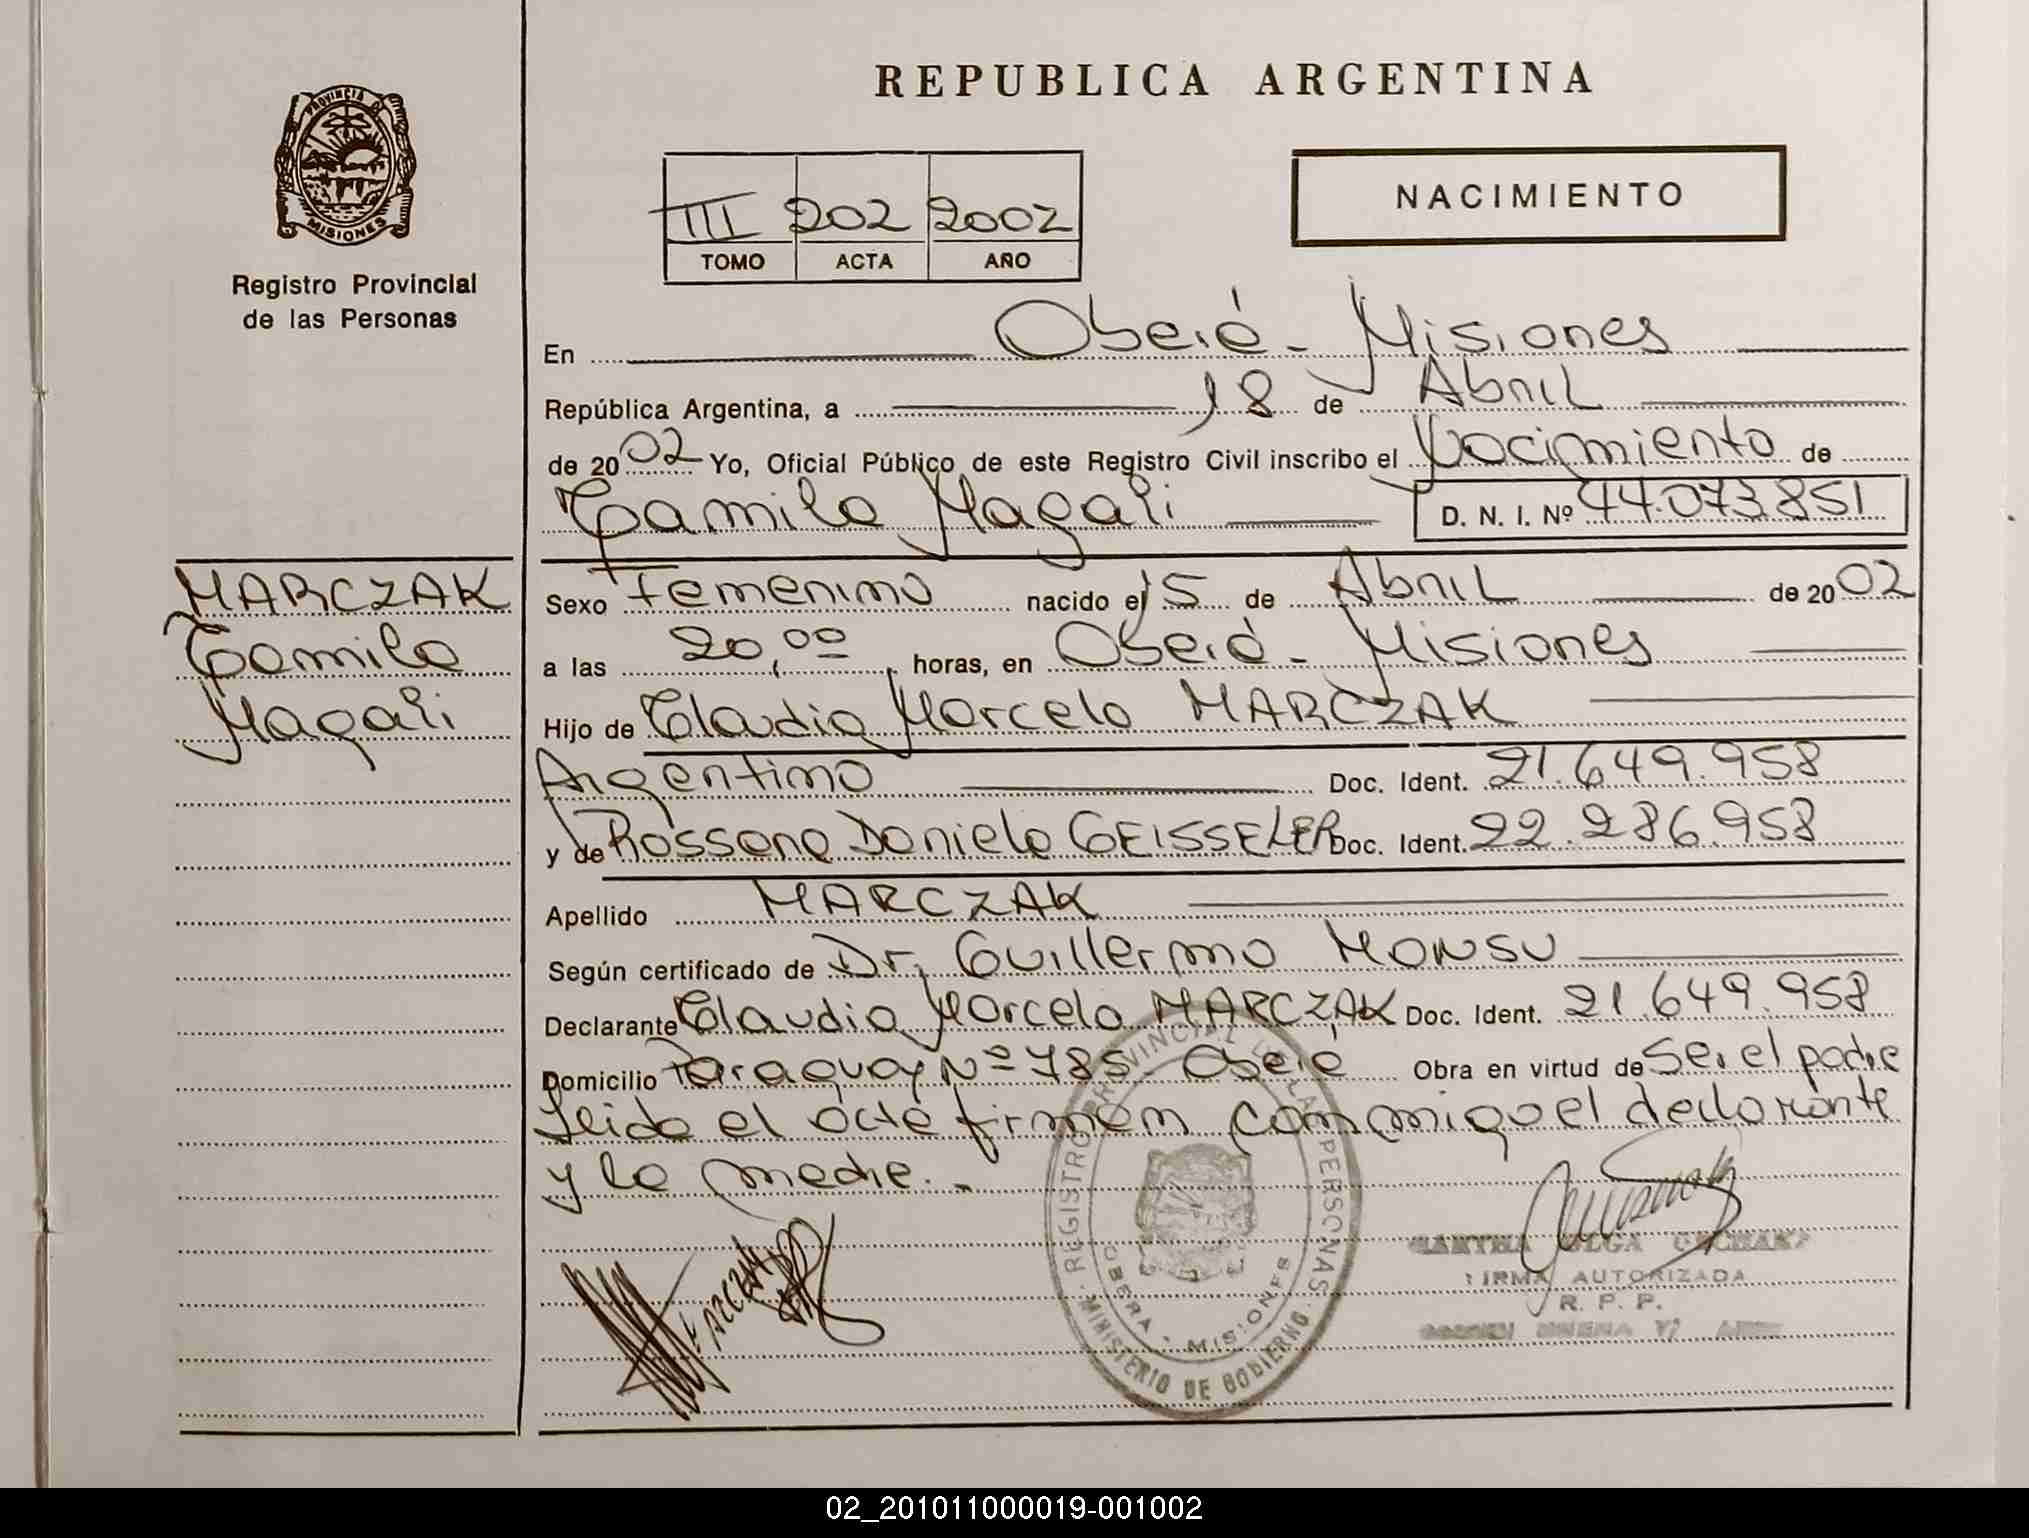 REPUBLICA ARGENTINA
PROVINCIA D
MISIONES
Registro Provincial
de las Personas
III 202 2002
TOMO ACTA AÑO
NACIMIENTO
En Oberá - Misiones
República Argentina, a 18 de Abril
de 2002 Yo, Oficial Público de este Registro Civil inscribo el Nacimiento de
Camila Magali D. N. I. Nº 44.073.851
MARCZAK
Camila
Magali
Sexo Femenino nacido el 15 de Abril de 2002
a las 20,00 horas, en Oberá - Misiones
Hijo de Claudio Marcelo MARCZAK
Argentino Doc. Ident. 21.649.958
y de Rossana Daniela GEISSELER Doc. Ident. 22.286.958
Apellido MARCZAK
Según certificado de Dr. Guillermo MONSU
Declarante Claudio Marcelo MARCZAK Doc. Ident. 21.649.958
Domicilio Paraguay Nº 785 - Oberá Obra en virtud de Ser el padre
Leida el acta firman conmigo el declarante
y la madre. -
MARCZAK
REGISTRO PROVINCIAL DE LAS PERSONAS
OBERA - MISIONES
MINISTERIO DE GOBIERNO
FIRMA AUTORIZADA
R. P. P.
02_201011000019-001002